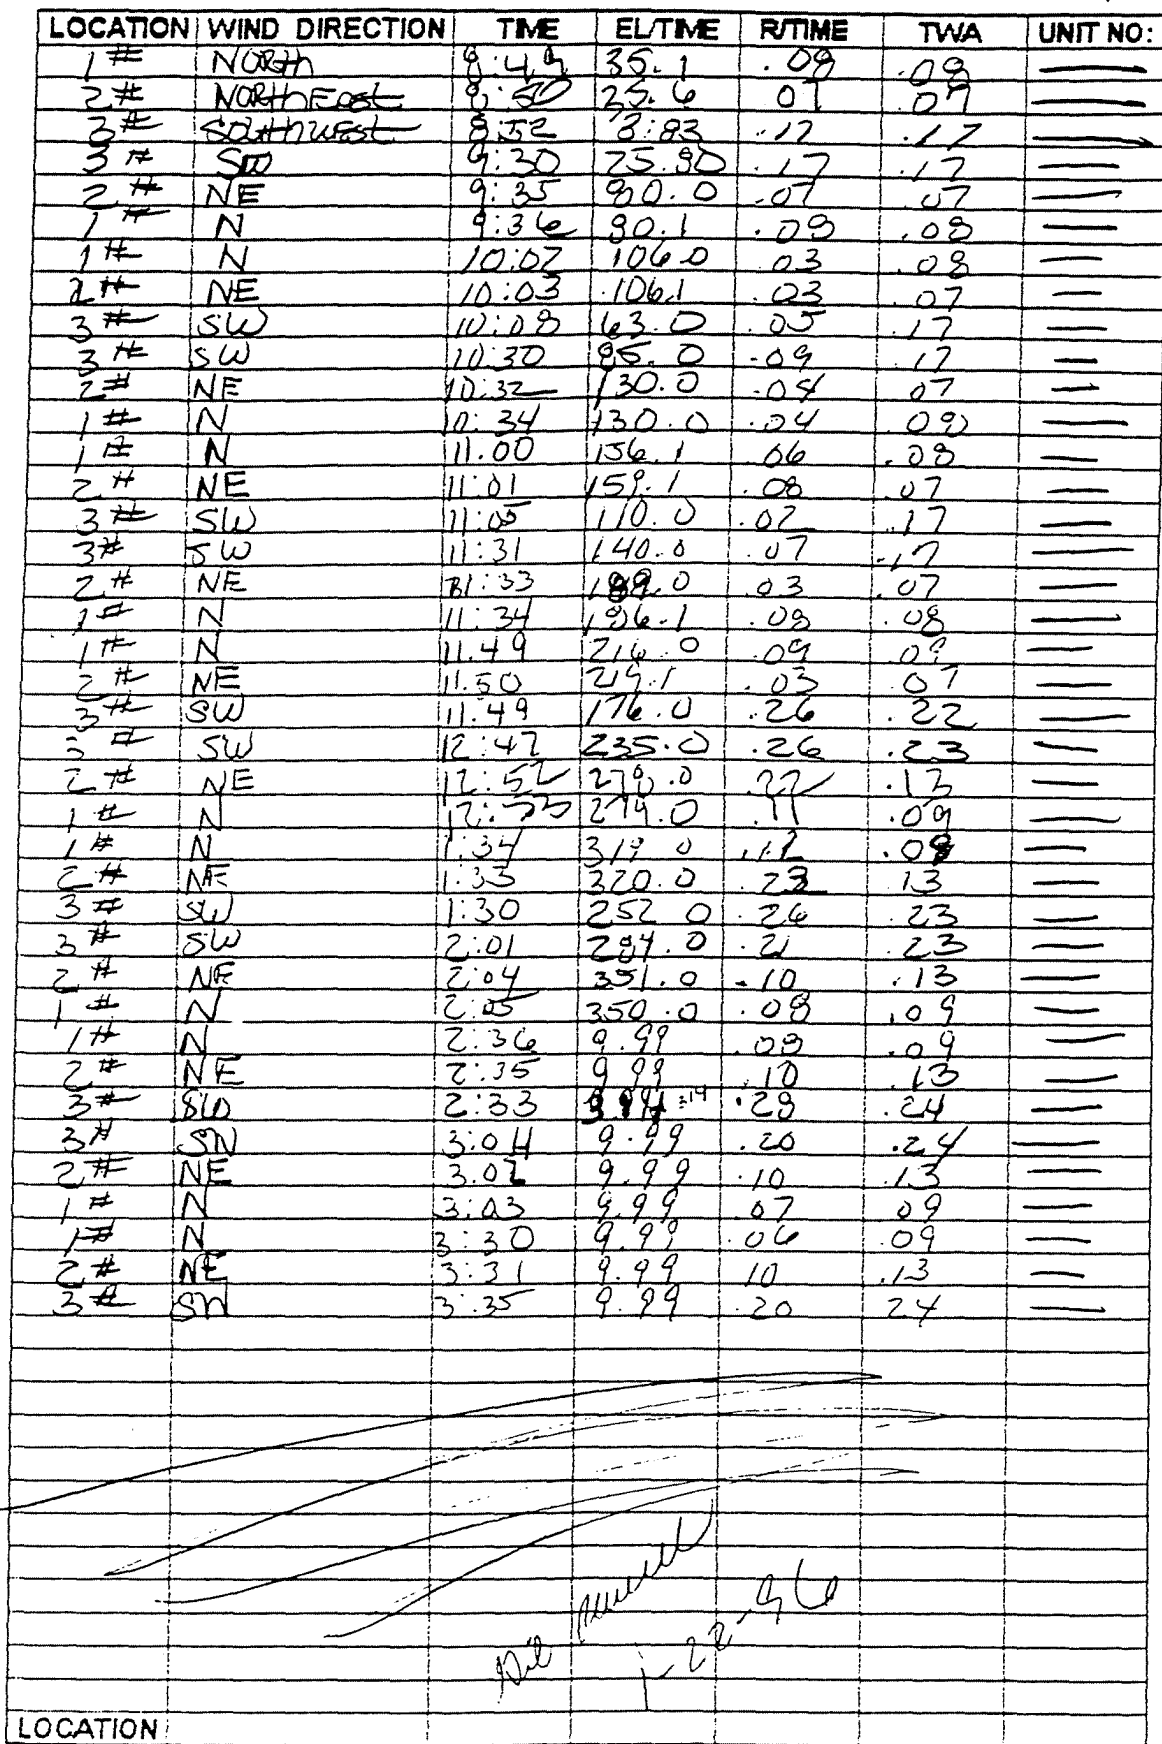 LOCATION WIND DIRECTION TIME EL/TIME R/TIME TWA UNIT NO:
1# NORTH 8:49 35.1 .08 .08 —
2# NORTHEast 8:50 25.6 07 .07 —
3# Southwest 8:52 .17 .17 —
3# SW 9:30 25.80 .17 .17 —
2# NE 9:35 80.0 .07 .07 —
1# N 9:36 80.1 .08 .08 —
1# N 10:02 106.0 .03 .08 —
2# NE 10:03 106.1 .03 .07 —
3# SW 10:08 63.0 .05 .17 —
3# SW 10:30 85.0 .09 .17 —
2# NE 10:32 130.0 .04 07 —
1# N 10:34 130.0 .04 .08 —
1# N 11:00 156.1 06 .08 —
2# NE 11:01 159.1 .08 .07 —
3# SW 11:05 110.0 .07 .17 —
3# SW 11:31 140.0 .07 .17 —
2# NE 11:33 .03 .07 —
1# N 11:34 186.1 .08 .08 —
1# N 11:49 216.0 .09 .09 —
2# NE 11:50 219.1 .03 .07 —
3# SW 11:49 176.0 .26 .22 —
3# SW 12:47 235.0 .26 .23 —
2# NE 12:52 278.0 .22 .13 —
1# N 12:53 279.0 .11 .09 —
1# N 1:34 319.0 .12 —
2# NE 1:33 320.0 .23 13 —
3# SW 1:30 252.0 .26 .23 —
3# SW 2:01 284.0 .21 .23 —
2# NE 2:04 351.0 .10 .13 —
1# N 2:05 350.0 .08 .09 —
1# N 2:36 9.99 .08 .09 —
2# NE 2:35 9.99 .10 .13 —
3# SW 2:33 .28 .24 —
3# SW 3:04 9.99 .20 .24 —
2# NE 3:02 9.99 .10 .13 —
1# N 3:03 9.99 07 09 —
1# N 3:30 9.99 .06 .09 —
2# NE 3:31 9.99 10 .13 —
3# SW 3:35 9.99 .20 24 —
1-22-96
LOCATION